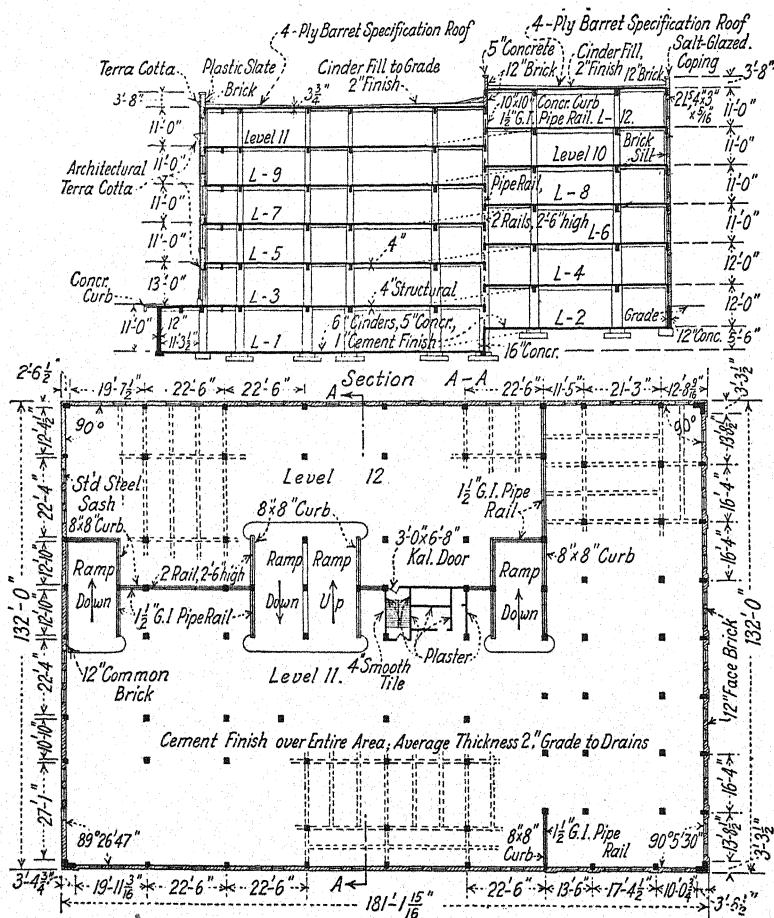 4-Ply Barret Specification Roof
4-Ply Barret Specification Roof
Terra Cotta
Plastic Slate
Brick
Cinder Fill to Grade
2"Finish
5"Concrete
12"Brick
Cinder Fill,
2"Finish
12"Brick
Salt-Glazed.
Coping
3'-8"
3'-8"
3 3/4"
10"x10" Concr. Curb
1 1/2"G.I. Pipe Rail. L-12.
11'-0"
11'-0"
Level 11
Level 10
Brick
Silt
11'-0"
11'-0"
Architectural
Terra Cotta
L-9
Pipe Rail,
L-8
11'-0"
11'-0"
L-7
2 Rails, 2'-6"high
L-6
11'-0"
11'-0"
L-5
4"
L-4
12'-0"
13'-0"
Concr.
Curb
L-3
4"Structural
12'-0"
11'-0"
12"
11'-3 1/2"
L-1
6"Cinders, 5"Concr.,
1"Cement Finish
L-2
Grade
16"Concr.
12"Conc.
5'-6"
Section A-A
2'-6 1/2"
19'-7 1/2"
22'-6"
22'-6"
A
22'-6"
11'-5"
21'-3"
12'-8 9/16"
3'-3 1/2"
90°
90°
12'-4 1/2"
13'-8 1/2"
Level 12
Std Steel
Sash
8"x8"Curb
8"x8"Curb
1 1/2"G.I. Pipe
Rail
22'-4"
16'-4"
3'-0"x6'-8"
Kal. Door
8"x8"Curb
16'-4"
12'-10"
Ramp
Down
2 Rail, 2'-6 high
Ramp
Down
Ramp
Up
Ramp
Down
132'-0"
12'-10"
1 1/2"G.I. Pipe Rail
132'-0"
Plaster
4"Smooth
Tile
12"Common
Brick
Level 11.
22'-4"
12"Face Brick
10'-10"
Cement Finish over Entire Area; Average Thickness 2", Grade to Drains
27'-1"
16'-4"
89°26'47"
8"x8"
Curb
1 1/2"G.I. Pipe
Rail
90°5'30"
13'-8 1/2"
3'-3 1/2"
3'-4 3/4"
19'-11 3/16"
22'-6"
22'-6"
A
22'-6"
13'-6"
17'-4 1/2"
10'-0 3/4"
181'-1 15/16"
3'-5 1/2"